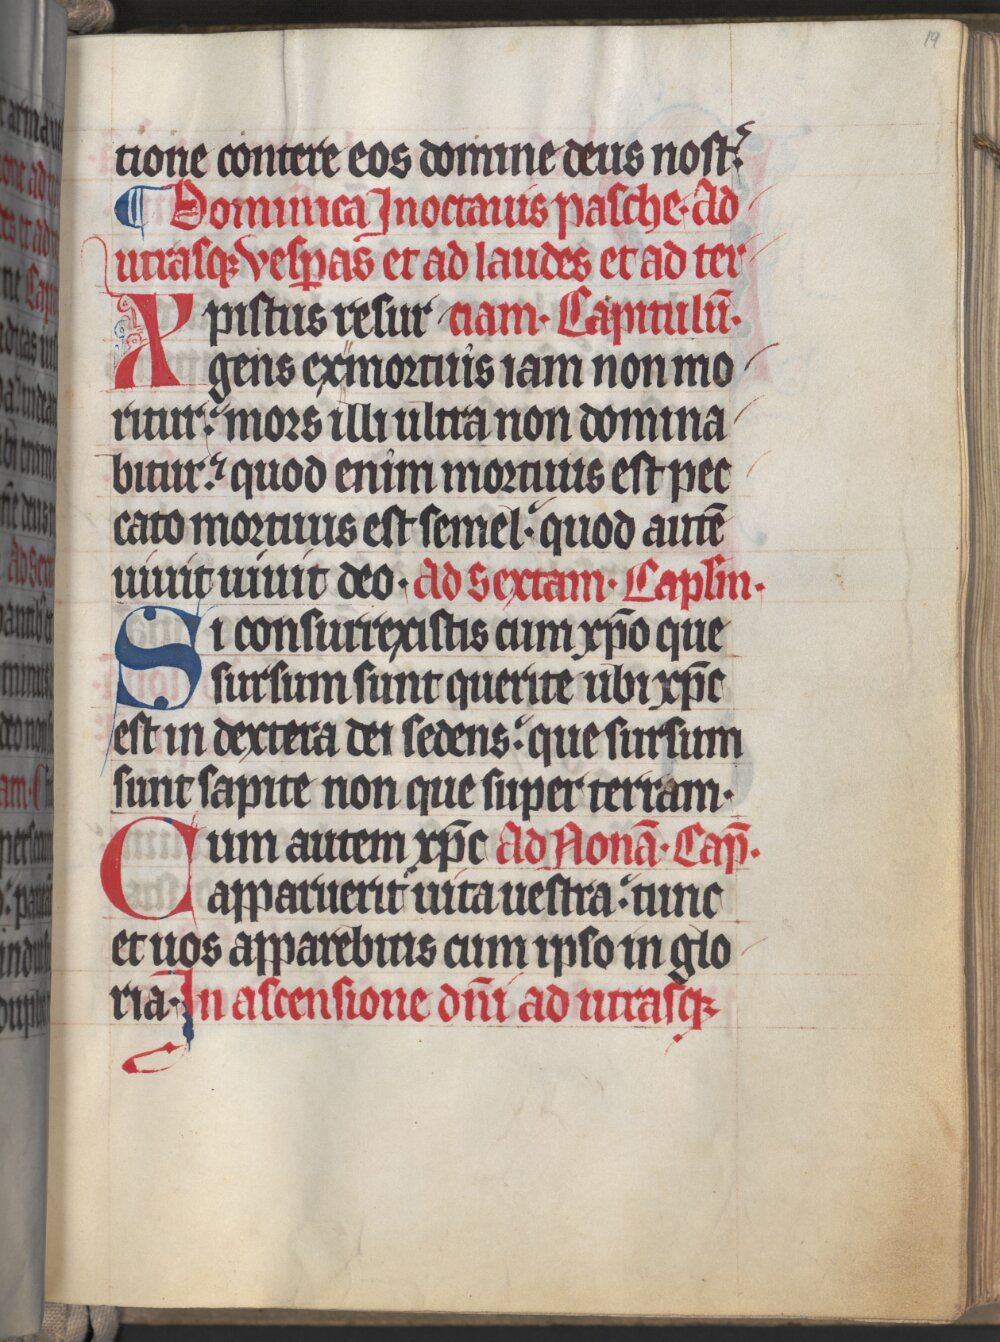 19
tione contere eos domine deus nost᷑
¶ Dominica Inoctauis pasche· Ad
utrasqꝫ vesꝑas et ad laudes et ad ter
Xpistus resur ciam· Capitulū·
gens exmortuis iam non mo
ritur: mors illi ultra non domina
bitur: quod enim mortuus est pec
cato mortuus est semel: quod autē
uiuit uiuit deo· Ad Sextam· Caplm·
Si consurrexistis cum xp̄o que
sursum sunt querite ubi xp̄c
est in dextera dei sedens: que sursum
sunt sapite non que super terram·
Cum autem xp̄c Ad Nonā· Cap̄·
apparuerit uita uestra: tunc
et uos apparebitis cum ipso in glo
ria· In ascensione dn̄i ad utrasqꝫ